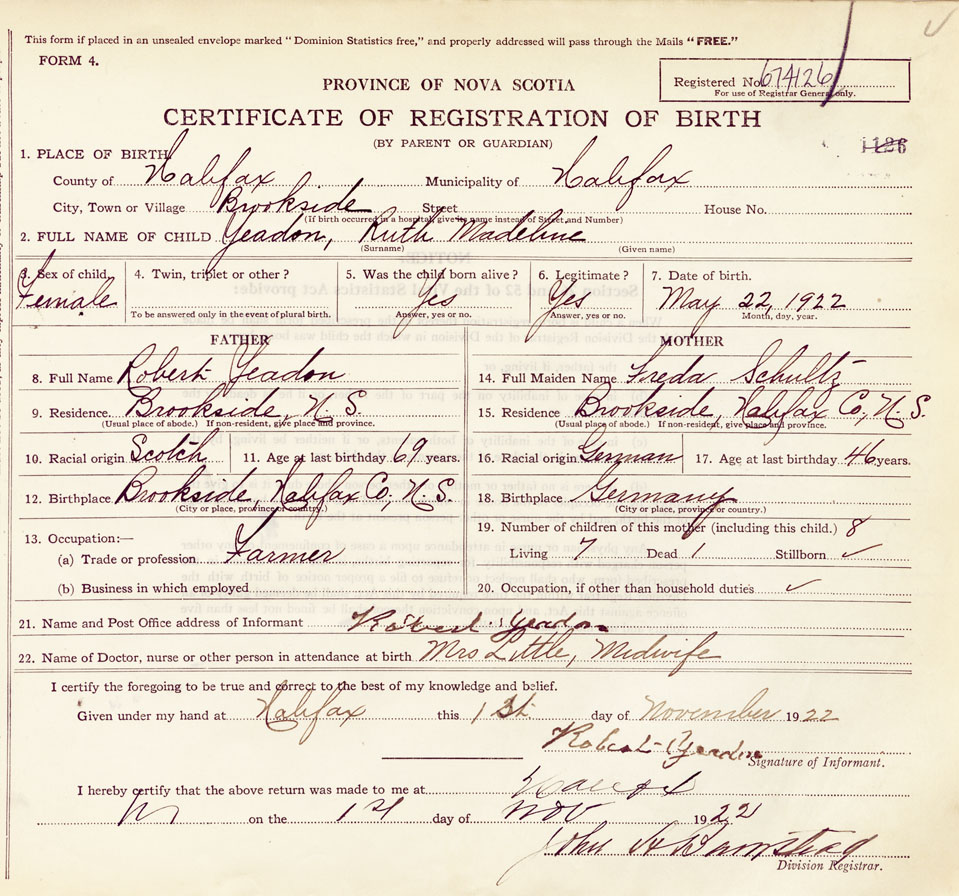 This form if placed in an unsealed envelope marked "Dominion Statistics free," and properly addressed will pass through the Mails "FREE."
FORM 4.
PROVINCE OF NOVA SCOTIA
Registered No. 674126
For use of Registrar General only.
CERTIFICATE OF REGISTRATION OF BIRTH
(BY PARENT OR GUARDIAN)
1126
1. PLACE OF BIRTH
County of Halifax Municipality of Halifax
City, Town or Village Brookside Street House No.
(If birth occurred in a hospital, give its name instead of Street and Number)
2. FULL NAME OF CHILD Yeadon, Ruth Madeline
(Surname) (Given name)
3. Sex of child. 4. Twin, triplet or other? 5. Was the child born alive? 6. Legitimate? 7. Date of birth.
Female Yes Yes May 22, 1922
To be answered only in the event of plural birth. Answer, yes or no. Answer, yes or no. Month, day, year.
FATHER MOTHER
8. Full Name Robert Yeadon 14. Full Maiden Name Freda Schultz
9. Residence. Brookside, N. S. 15. Residence Brookside, Halifax Co, N. S.
(Usual place of abode.) If non-resident, give place and province. (Usual place of abode.) If non-resident, give place and province.
10. Racial origin Scotch 11. Age at last birthday 69 years. 16. Racial origin German 17. Age at last birthday 46 years.
12. Birthplace Brookside, Halifax Co, N. S. 18. Birthplace Germany
(City or place, province or country.) (City or place, province or country.)
13. Occupation:— 19. Number of children of this mother (including this child.) 8
(a) Trade or profession Farmer Living 7 Dead 1 Stillborn ✓
(b) Business in which employed 20. Occupation, if other than household duties ✓
21. Name and Post Office address of Informant Robert Yeadon
22. Name of Doctor, nurse or other person in attendance at birth Mrs Little, Midwife
I certify the foregoing to be true and correct to the best of my knowledge and belief.
Given under my hand at Halifax this 1st day of November 1922
Robert Yeadon
Signature of Informant.
I hereby certify that the above return was made to me at Halifax
on the 1st day of Nov 1922
John A
Division Registrar.